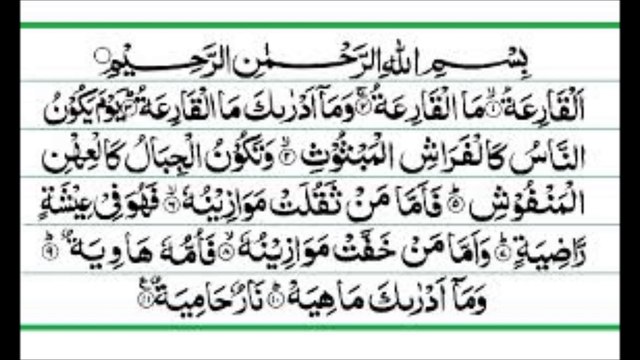 بِسْمِ اللهِ الرَّحْمٰنِ الرَّحِيْمِ
اَلْقَارِعَةُ ۙ﴿۱﴾ مَا الْقَارِعَةُ ۚ﴿۲﴾ وَمَاۤ اَدْرٰىكَ مَا الْقَارِعَةُ ؕ﴿۳﴾ يَوْمَ يَكُوْنُ
النَّاسُ كَالْفَرَاشِ الْمَبْثُوْثِ ۙ﴿۴﴾ وَتَكُوْنُ الْجِبَالُ كَالْعِهْنِ
الْمَنْفُوْشِ ؕ﴿۵﴾ فَاَمَّا مَنْ ثَقُلَتْ مَوَازِيْنُهٗ ۙ﴿۶﴾ فَهُوَ فِىْ عِيْشَةٍ
رَّاضِيَةٍ ؕ﴿۷﴾ وَاَمَّا مَنْ خَفَّتْ مَوَازِيْنُهٗ ۙ﴿۸﴾ فَاُمُّهٗ هَاوِيَةٌ ؕ﴿۹﴾
وَمَاۤ اَدْرٰىكَ مَاهِيَهْ ؕ﴿۱۰﴾ نَارٌ حَامِيَةٌ ﴿۱۱﴾